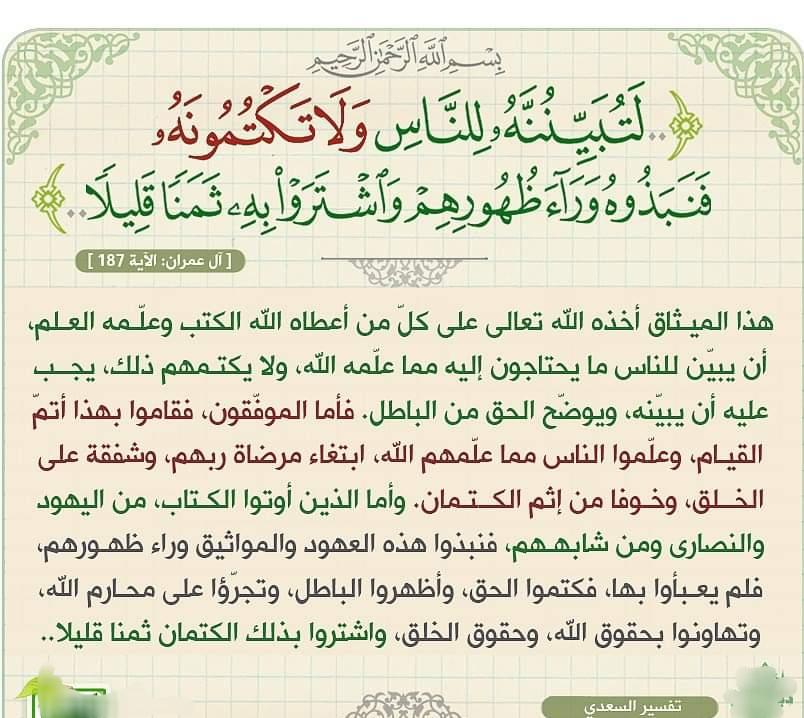 بِسْمِ اللَّهِ الرَّحْمَٰنِ الرَّحِيمِ
﴿.. لَتُبَيِّنُنَّهُۥ لِلنَّاسِ وَلَا تَكْتُمُونَهُۥ
فَنَبَذُوهُ وَرَآءَ ظُهُورِهِمْ وَٱشْتَرَوْا۟ بِهِۦ ثَمَنًا قَلِيلًا.. ﴾
[ آل عمران: الآية 187 ]
هذا الميـثاق أخذه الله تعالى على كلّ من أعطاه الله الكتب وعلّـمه العـلم،
أن يبيّـن للناس ما يحتاجون إليه مما علّمه الله، ولا يكتـمهم ذلك، يجـب
عليه أن يبيّـنه، ويوضّـح الحق من الباطل. فأما الموفّقون، فقاموا بهذا أتمّ
القيـام، وعلّـموا الناس مما علّـمهم الله، ابتغاء مرضاة ربهم، وشفقة على
الخــلق، وخـوفا من إثم الكــتـمان. وأما الذين أوتوا الكـتاب، من اليهود
والنصارى ومن شابهـهم، فنبذوا هذه العهود والمواثيق وراء ظهـورهم،
فلم يعـبأوا بها، فكتموا الحق، وأظهروا الباطل، وتجرّؤا على محارم الله،
وتهاونوا بحقوق الله، وحقوق الخلق، واشتروا بذلك الكتمان ثمنا قليلا..
تفسير السعدي